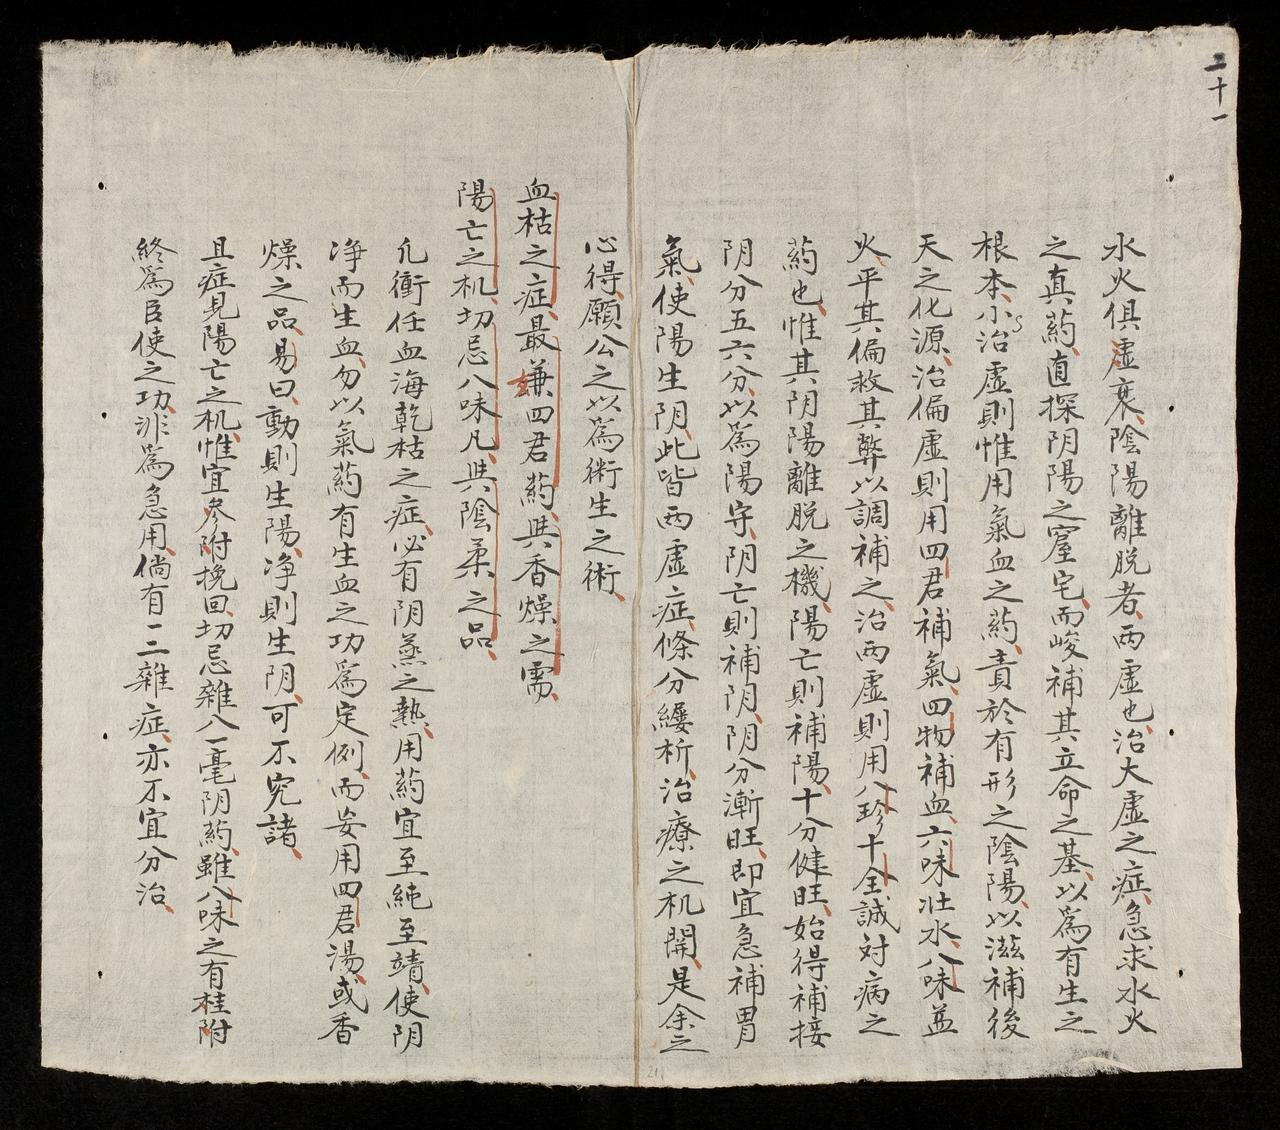 二十一
水火俱虚衰、陰陽離脱者、両虚也、治大虚之症、急求水火
之真药、直探阴陽之窟宅、而峻補其立命之基、以爲有生之
根本、小治虚則惟用氣血之药、責於有形之陰陽、以滋補後
天之化源、治偏虚則用四君補氣、四物補血、六味壮水、八味益
火、平其偏救其弊以調補之、治両虚則用八珍十全誠対病之
药也、惟其阴陽離脱之機、陽亡則補陽、十分健旺、始得補接
阴分五六分、以爲陽守、阴亡則補阴、阴分漸旺、即宜急補胃
氣、使陽生阴、此皆両虚症、條分縷析、治療之机開、是余之
心得、願公之以爲術生之術、
血枯之症、最兼四君药、與香燥之需、
陽亡之机、切忌八味凡、與陰柔之品、
凢衝任血海乾枯之症、必有阴蒸之熱、用药宜至純至靖、使阴
净而生血、勿以氣药有生血之功爲定例、而妄用四君湯、或香
燥之品、易曰、動則生陽、净則生阴、可不究諸、
且症見陽亡之机、惟宜參附挽回、切忌雜八一毫阴药、雖八味之有桂附
終爲臣使之功、非爲急用、倘有一二雜症、亦不宜分治、
21